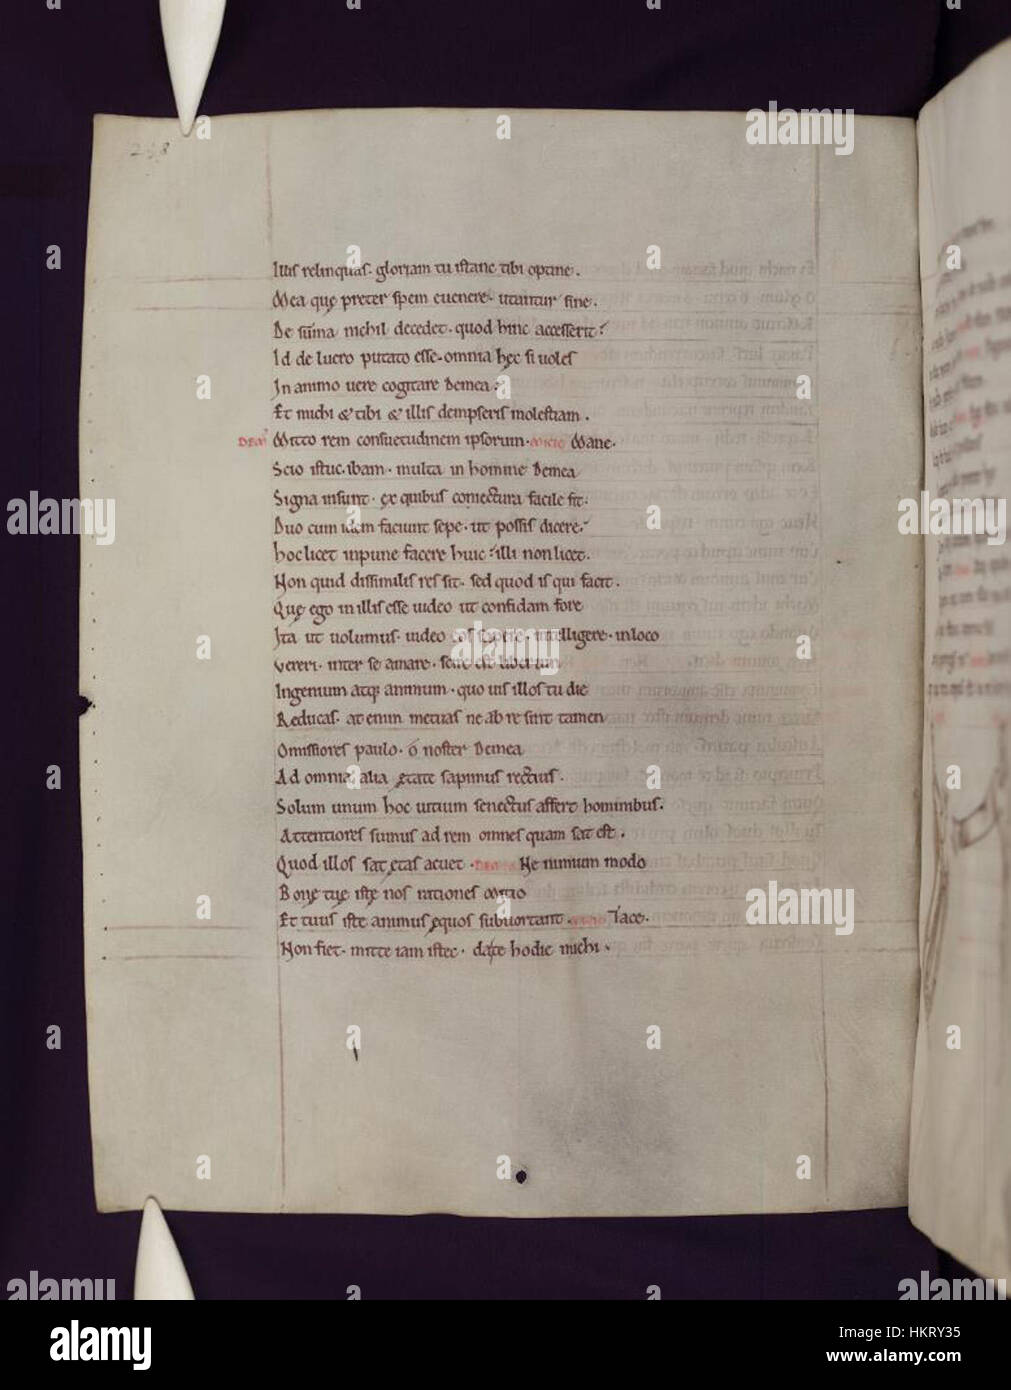 248
Illis relinquas. gloriam tu istanc tibi optine.
Mea quę preter spem euenere. utantur sine.
De sūma nichil decedet. quod hinc accesserit.
Id de lucro putato esse. omnia hęc si uoles
In animo uere cogitare Demea.
Et michi & tibi & illis dempseris molestiam.
DEM Mitto rem consuetudinem ipsorum. MICIO Mane.
Scio istuc. ibam. multa in homine Demea
Signa insunt. ex quibus coniectura facile fit.
Duo cum idem faciunt sepe. ut possis dicere.
hoc licet inpune facere huic. illi non licet.
Non quid dissimilis res sit. sed quod is qui facit.
Quę ego in illis esse uideo ut confidam fore
Ita ut uolumus. uideo eos sapere. intelligere. in loco
vereri. inter se amare. scire est liberum
Ingenium atq; animum. quo uis illos tu die
Reducas. at enim metuas ne ab re sint tamen
Omissiores paulo. o noster Demea
Ad omnia alia ętate sapimus rectius.
Solum unum hoc uitium senectus affert hominibus.
Attentiores sumus ad rem omnes quam sat est.
Quod illos sat ętas acuet. DEMEA Ne nimium modo
Bonę tuę istę nos rationes Micio
Et tuus iste animus ęquos subuortant. MICIO Tace.
Non fiet. mitte iam istec. da te hodie michi.
alamy
Image ID: HKRY35
www.alamy.com